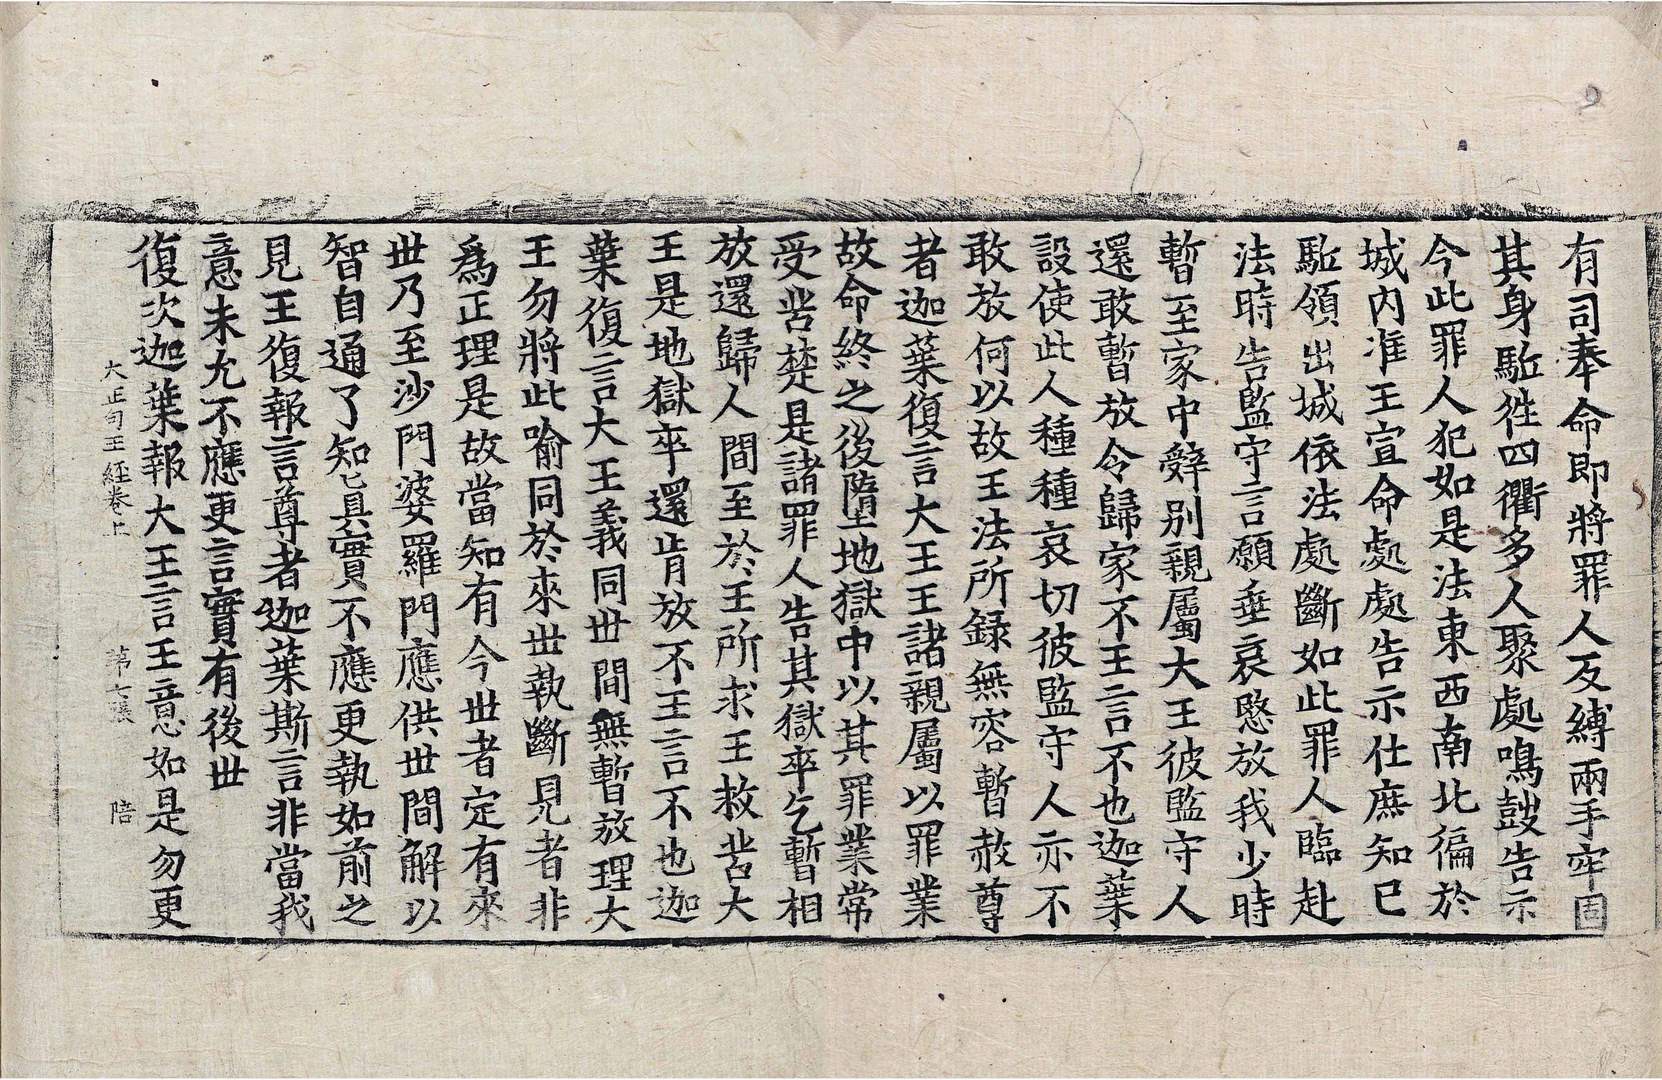 有司奉命即將罪人反縛兩手牢固
其身駈徃四衢多人聚處鳴鼓告示
今此罪人犯如是法東西南北徧於
城內准王宣命處處告示仕庶知已
駈領出城依法處斷如此罪人臨赴
法時告監守言願垂哀愍放我少時
暫至家中辤別親屬大王彼監守人
還敢暫放令歸家不王言不也迦葉
設使此人種種哀切彼監守人亦不
敢放何以故王法所録無容暫赦尊
者迦葉復言大王王諸親屬以罪業
故命終之後墮地獄中以其罪業常
受苦楚是諸罪人告其獄卒乞暫相
放還歸人間至於王所求王救苦大
王是地獄卒還肯放不王言不也迦
葉復言大王義同丗間無暫放理大
王勿將此喻同於來丗執斷見者非
爲正理是故當知有今丗者定有來
丗乃至沙門婆羅門應供丗間解以
智自通了知真實不應更執如前之
見王復報言尊者迦葉斯言非當我
意未允不應更言實有後丗
復次迦葉報大王言王意如是勿更
大正句王經卷上　第七張　陪